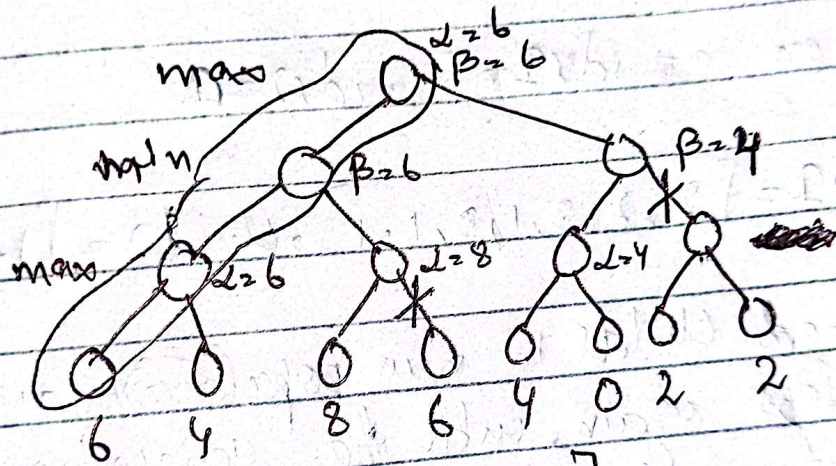 α=6
max β=6
min β=6 β=4
max α=6 α=8 α=4
6 4 8 6 4 0 2 2